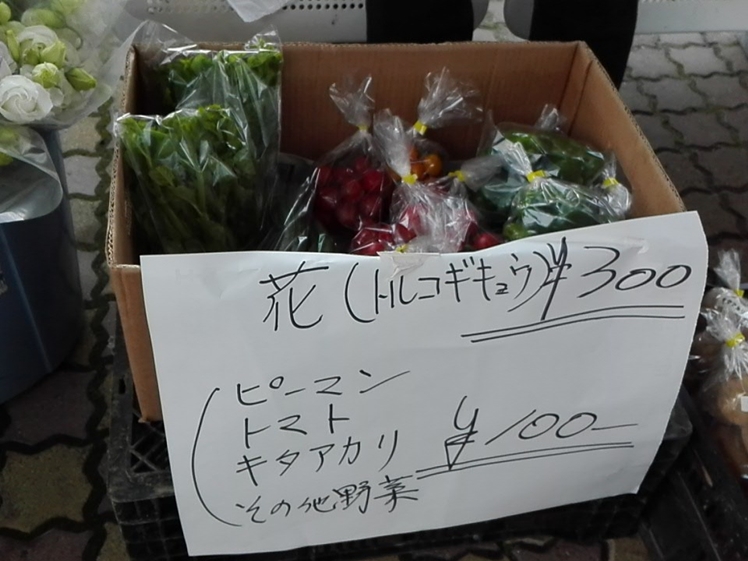 花(トルコギキョウ)¥300
ピーマン
トマト
キタアカリ ¥100-
その他野菜